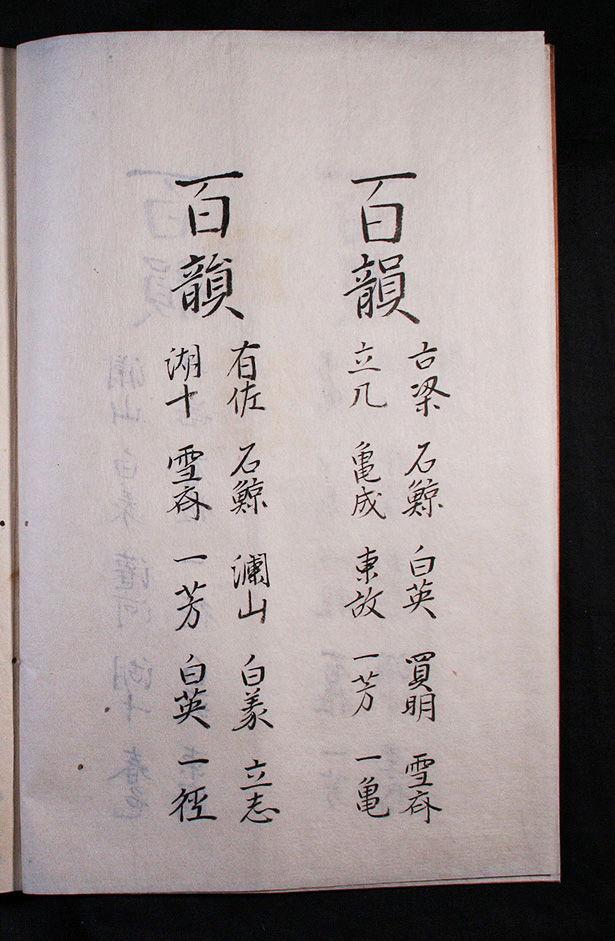 百韻
古梁 石鯨 白英 買明 雪斎
立几 亀成 東故 一芳 一亀
百韻
有佐 石鯨 瀾山 白義 立志
湖十 雪斎 一芳 白英 一径